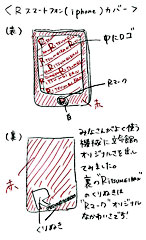 < Rスマートフォン(iphone)カバー >
(表)
中にロゴ
Rマーク
赤
白
(裏)
赤
みなさんがよく使う
機械に立命館の
オリジナルさを出し
てみました。
裏の"Ritsumeikan"
のくりぬきは
"Rマーク"オリジナル
なかわいさです!
R
Ritsumeikan
くりぬき